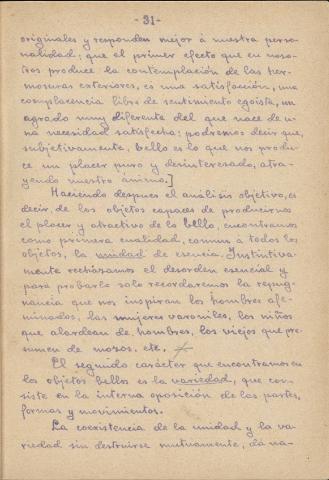 - 31 -
originales y responden mejor á nuestra perso-
nalidad; que el primer efecto que en noso-
tros produce la contemplación de las her-
mosuras exteriores, es una satisfacción, una
complacencia libre de sentimiento egoista, un
agrado muy diferente del que nace de u-
na necesidad satisfecha; podremos decir que,
subjetivamente, bello es lo que nos produ-
ce un placer puro y desinteresado, atra-
yendo nuestro ánimo.]
Haciendo despues el análisis objetivo, es
decir, de los objetos capaces de producirnos
el placer y atractivo de lo bello, encontramos
como primera cualidad, comun a todos los
objetos, la unidad de esencia. Instintiva-
mente rechazamos el desorden esencial y
para probarlo solo recordaremos la repug-
nancia que nos inspiran los hombres afe-
minados, las mujeres varoniles, los niños
que alardean de hombres, los viejos que pre-
sumen de mozos, etc.
El segundo carácter que encontramos en
los objetos bellos es la variedad, que con-
siste en la interna oposición de las partes,
formas y movimientos.
La coexistencia de la unidad y la va-
riedad sin destruirse mutuamente, dá na-